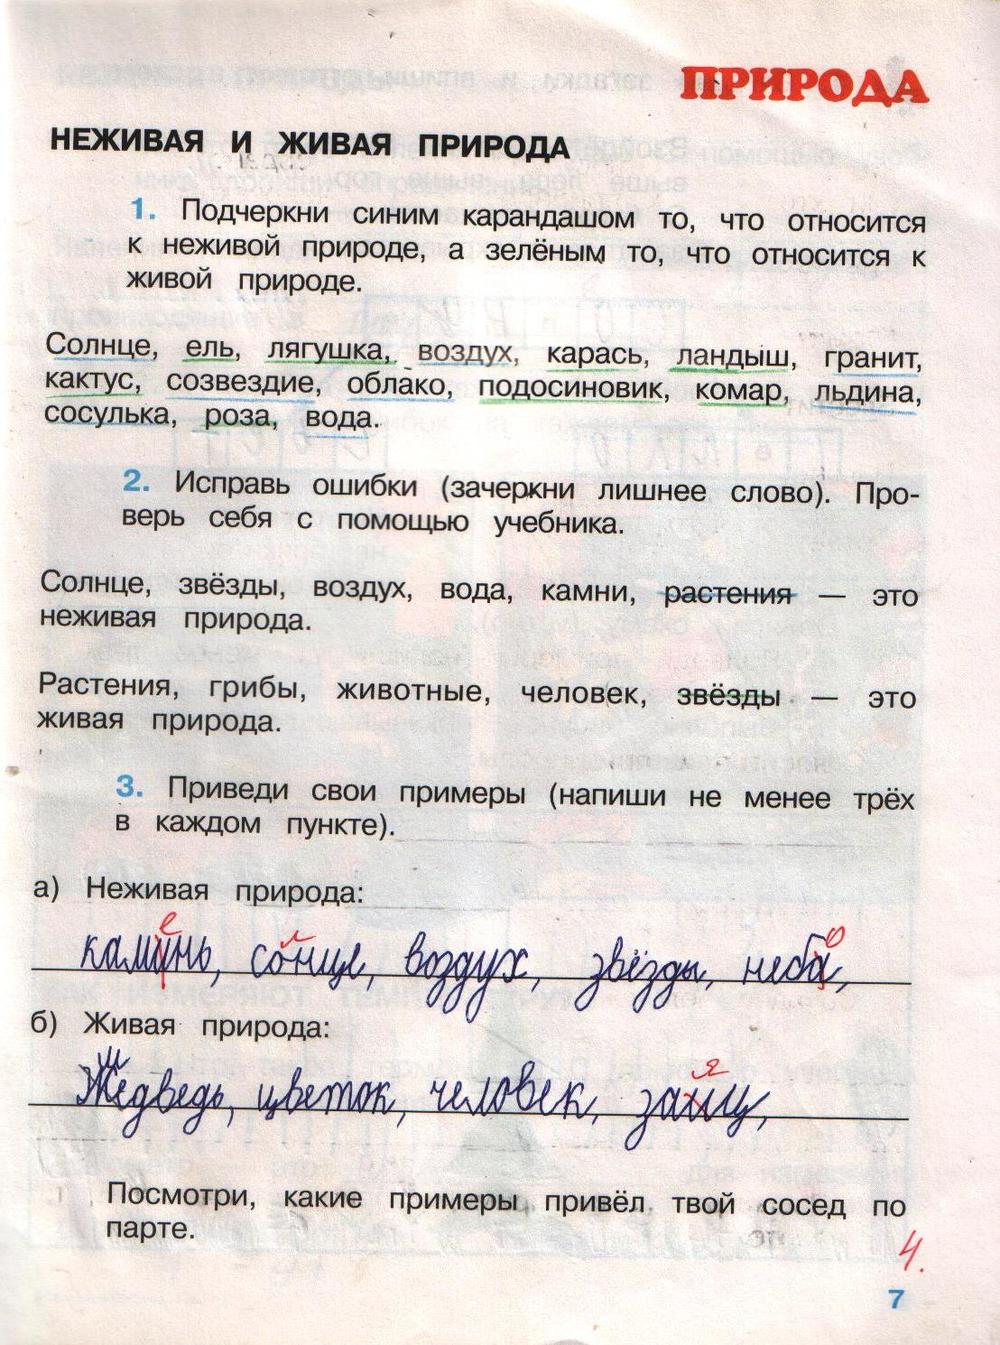 ПРИРОДА
НЕЖИВАЯ И ЖИВАЯ ПРИРОДА
1. Подчеркни синим карандашом то, что относится
к неживой природе, а зелёным то, что относится к
живой природе.
Солнце, ель, лягушка, воздух, карась, ландыш, гранит,
кактус, созвездие, облако, подосиновик, комар, льдина,
сосулька, роза, вода.
2. Исправь ошибки (зачеркни лишнее слово). Про-
верь себя с помощью учебника.
Солнце, звёзды, воздух, вода, камни, растения — это
неживая природа.
Растения, грибы, животные, человек, звёзды — это
живая природа.
3. Приведи свои примеры (напиши не менее трёх
в каждом пункте).
а) Неживая природа:
е л о
каминь, сонце, воздух, звёзды, неба,
б) Живая природа:
м я
Жедведь, цветок, человек, заиц,
Посмотри, какие примеры привёл твой сосед по
парте.
4.
7